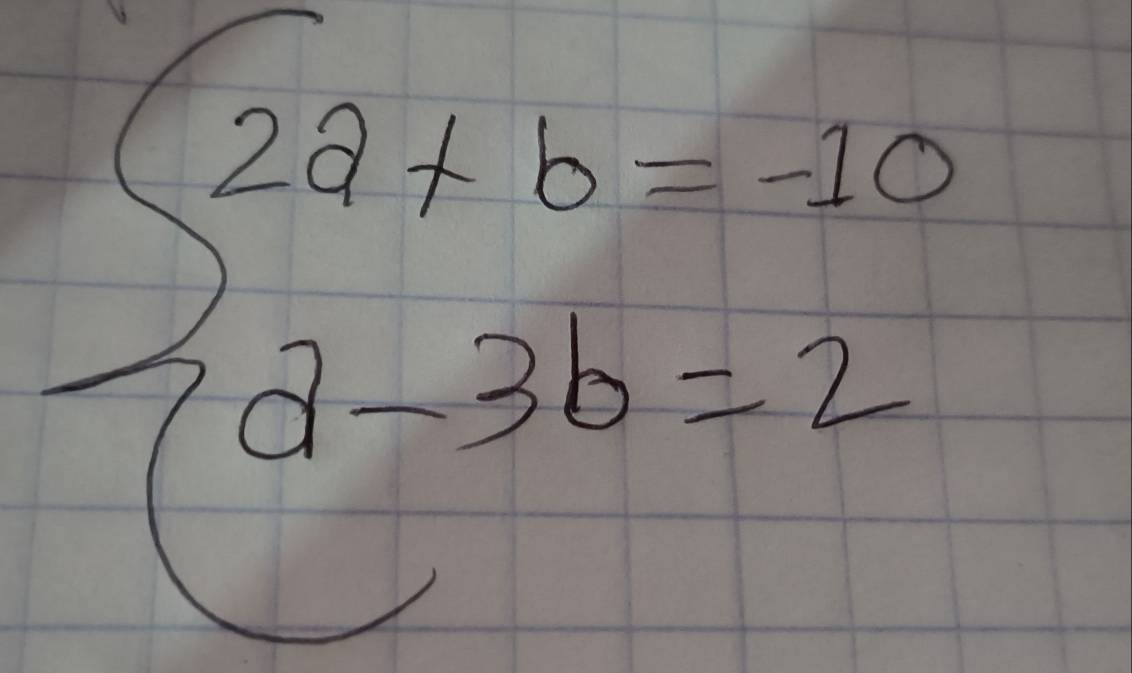 2a + b = -10
a - 3b = 2